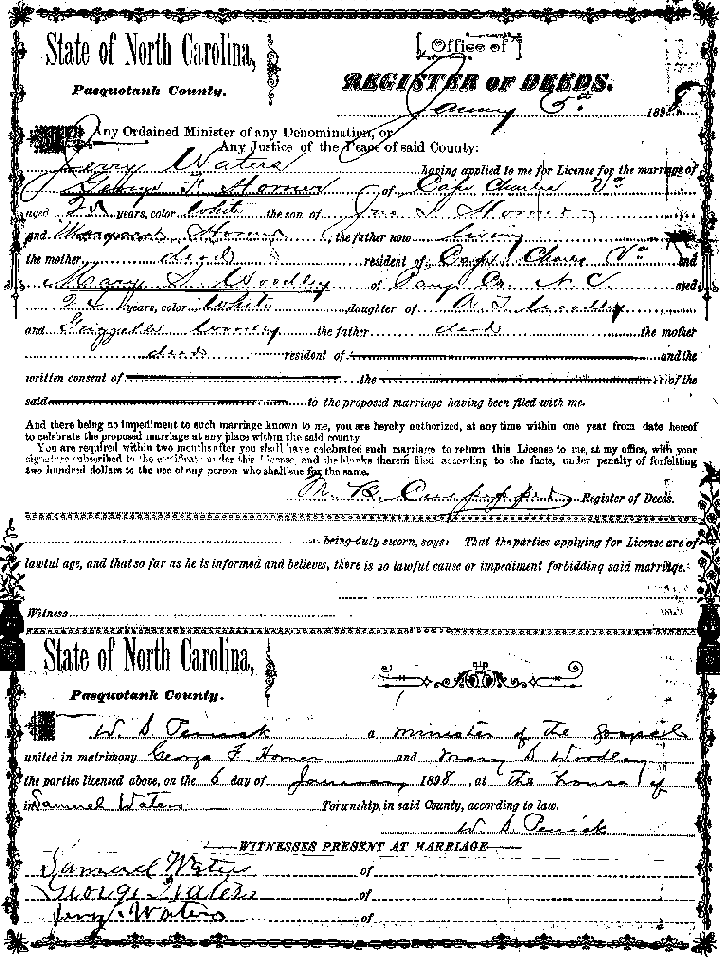 State of North Carolina, [Office of]
Pasquotank County. REGISTER OF DEEDS.
January 5th 1898
Any Ordained Minister of any Denomination, or
Any Justice of the Peace of said County:
Jerry Waters having applied to me for License for the marriage of
George F. Horner of Cape Charles Va
aged years, color White the son of Jno
and Margaret Horner, the father now living
the mother dead resident of Cape Charles Va and
Mary S. Woodley of Pasq Co. N. C. aged
years, color White daughter of
and the father dead the mother
dead resident of and the
written consent of the of the
said to the proposed marriage having been filed with me.
And there being no impediment to such marriage known to me, you are hereby authorized, at any time within one year from date hereof
to celebrate the proposed marriage at any place within the said county
You are required within two months after you shall have celebrated such marriage to return this License to me, at my office, with your
signature subscribed to the certificate under this License, and the blanks therein filled according to the facts, under penalty of forfeiting
two hundred dollars to the use of any person who shall sue for the same.
M. B. Culpepper Register of Deeds.
being duly sworn, says: That the parties applying for License are of
lawful age, and that so far as he is informed and believes, there is no lawful cause or impediment forbidding said marriage.
Witness
State of North Carolina,
Pasquotank County.
W. D. Penick a minister of the Gospel
united in matrimony George F Horner and Mary S Woodley
the parties licensed above, on the 6 day of January 1898, at the house of
in Samuel Waters Township, in said County, according to law.
W. D. Penick
WITNESSES PRESENT AT MARRIAGE
Samuel Waters of
George Waters of
Jerry Waters of